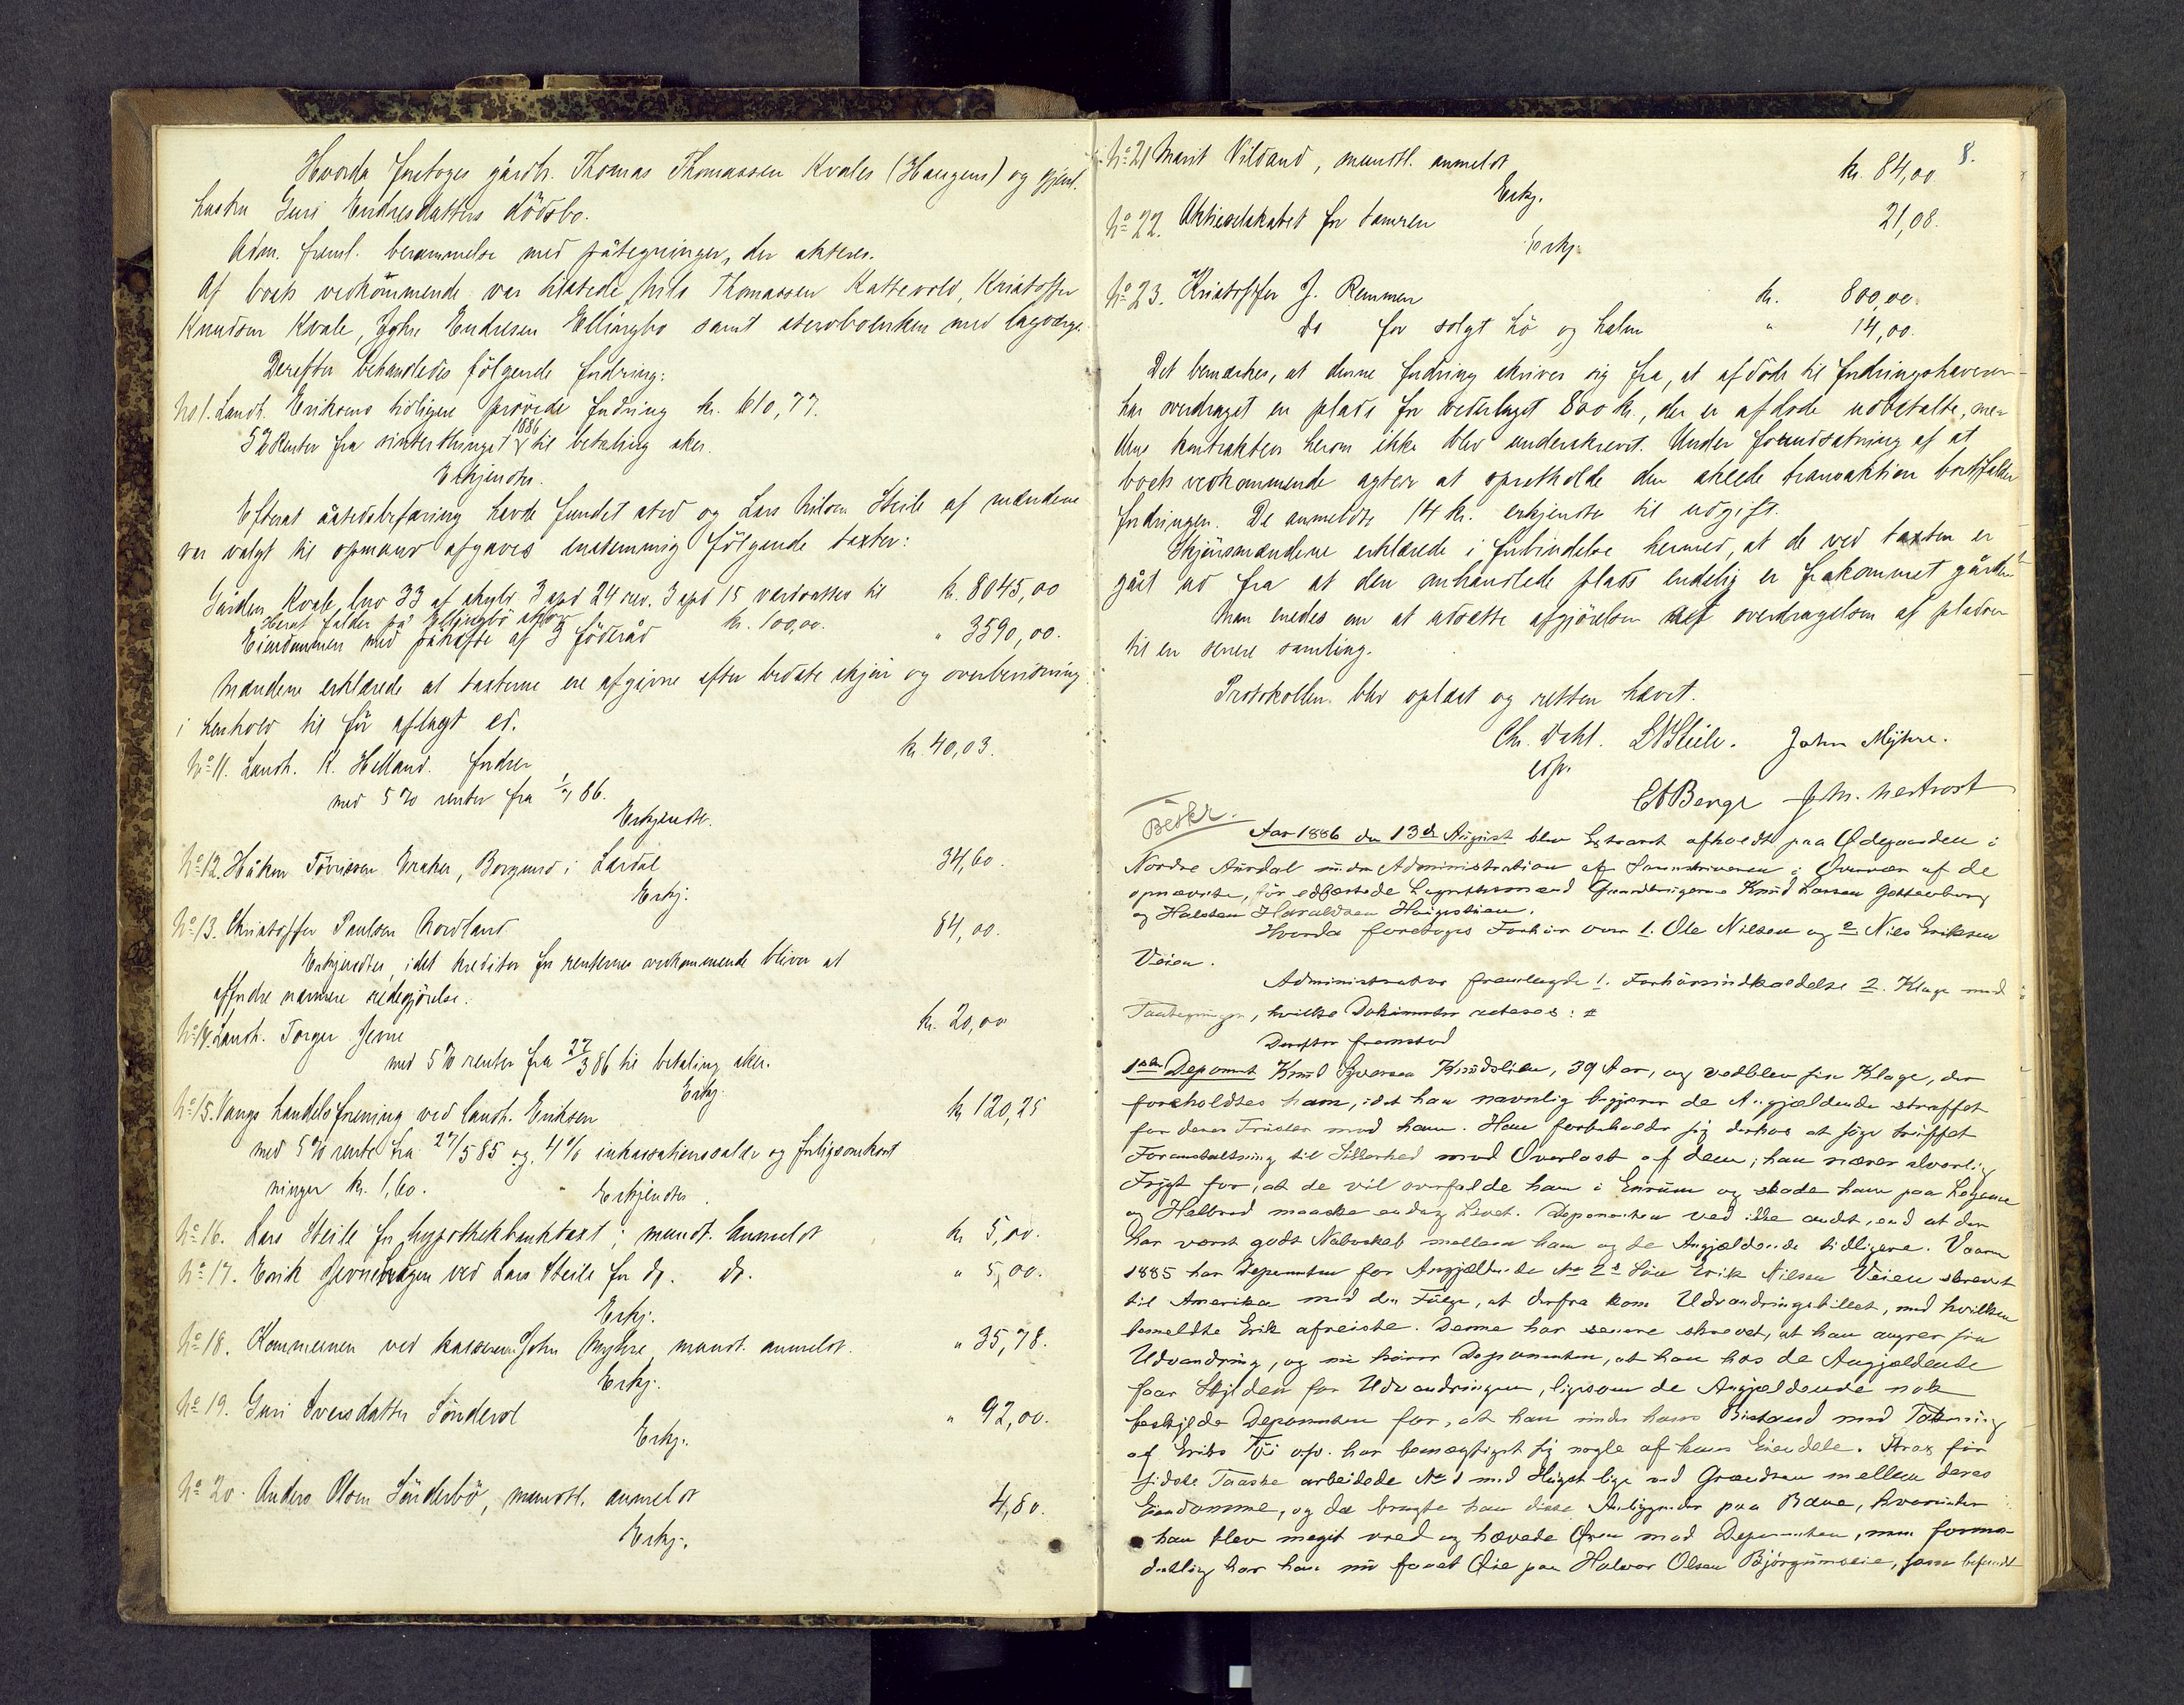 Hvorda foretoges gårdbr. Thomas Thomassen Kvales (Haugens) og gjenl.
hustru Guri Endresdatters dödsbo.
Adm. freml. berammelse med påtegninger, der akteres.
Af boets vedkommende var tilstede Nils Thomassen Kattevold, Kristoffer
Knudsen Kvale, Johs Endresen Ellingbo samt sterboenken med lagværge.
Derefter behandledes fölgende fordring:
No 1. Landh. Eriksens tidligere prövede fordring kr. 610,77.
5% Renter fra vintertinget 1886 til betaling sker.
Erkjendtes.
Efterat åstedsbefaring havde fundet sted og Lars Nilsen Steile af mændene
var valgt til opmand afgaves enstemmig fölgende taxter:
Gården Kvale, lno 33 af skyld 3 spd 24 rev. 3 spd 15 værdsattes til kr. 8045,00
Heraf falder på Ellingbö kr. 100,00.
Eiendommen med påhæfte af 3 föderåd " 3590,00.
Mændene erklærede at taxterne ere afgivne efter bedste skjön og overbevisning
i henhold til för aflagt ed.
No 11. Landh. K. Helland fordrer kr. 40,03.
med 5% renter fra 1/1 86.
Erkjendtes.
No 12. Håken Eraker, Borgund i Lærdal 34,60.
Erkj:
No 13. Christoffer Paulsen Nordland 84,00.
Erkjendtes, idet kreditor for renternes vedkommende bliver at
affordre nærmere redegjörelse.
No 14. Landh. Torger Jevne kr. 20,00
med 5% renter fra 27/3 86 til betaling sker.
Erkj:
No 15. Vangs handelsforening ved landh. Eriksen kr 120,25
med 5% rente fra 27/5 85 og 4% inkassationssalær og forligsomkost
ninger kr. 1,60. Erkjendtes.
No 16. Lars Steile for hypothekbanktaxt; mundt. anmeldt kr 5,00.
No 17. Erik Jevnehagen ved Lars Steile for do. do. " 5,00.
Erkj:
No 18. Kommunen ved kasserer John Myhre, mundt. anmeldt. " 35,78.
Erkj:
No 19. Guri Iversdatter Sönderol " 92,00.
Erkj:
No 20. Anders Olsen Sönderbö, mundtl. anmeldt 4,80.
Erkj:
8.
No 21 Marit Vildand, mundtl. anmeldt kr. 84,00
Erkj.
No 22. Aktieselskabet for tømren 21,08.
Erkj:
No 23. Kristoffer J. Remmen kr. 800,00.
do for solgt hö og halm " 14,00.
Det bemærkes, at denne fordring skriver sig fra, at afdöde til fordringshaveren
har overdraget en plads for vederlaget 800 kr., der er afdöde udbetalte, men
uden kontrakten herom ikke blev underskrevet. Under forudsætning af at
boets vedkommende agter at opretholde den skeede transaktion bortfalder
fordringen. De anmeldte 14 kr. erkjendtes til udgift.
Skjönsmændene erklærede i forbindelse hermed, at de ved taxten er
gået ud fra at den omhandlede plads endelig er frakommet gården
Man enedes om at udsætte afgjörelsen af overdragelsen af pladsen
til en senere samling.
Protokollen blev oplæst og retten hævet.
Chr. Dahl. LNSteile. John Myhre.
edsv.
EOBerge Johs. Nertrost
Beskr.
Aar 1886 den 13de August blev Extraret afholdt paa Ødegaarden i
Nordre Aurdal under Administration af Sorenskriveren i Overvær af de
opnævnte, før edfæstede Lagrettesmænd Gaardbrugerne Knud Larsen Gottenborg
og Halsten Haraldsen Haugstuen.
Hvorda foretoges Forhør over 1. Ole Nilsen og 2 Nils Eriksen
Veien.
Administrator fremlagde 1. Forhørsindkaldelse 2. Klage med
Paategninger, hvilke Dokumenter acteres: #
Derefter fremstod
1ste Deponent Knud Syversen Knudslien, 39 Aar, og vedblev sin Klage, der
foreholdtes ham, idet han navnlig begjærer de Angjældende straffet
for deres Trusler mod ham. Han forbeholder sig derhos at søge truffet
Foranstaltning til Sikkerhed mod Overlast af dem; han nærer alvorlig
Frygt for, at de vil overfalde ham i Enrum og skade ham paa Legeme
og Helbred maaske endog Livet. Deponenten ved ikke andet, end at der
har været godt Naboskab mellem ham og de Angjældende tidligere. Vaaren
1885 har Deponenten for Angjældende No 2s Søn Erik Nilsen Veien skrevet
til Amerika med den Følge, at derfra kom Udvandringsbillet, med hvilken
bemeldte Erik afreiste. Denne har senere skrevet, at han angrer sin
Udvandring, og nu hører Deponenten, at han hos de Angjældende
faar Skylden for Udvandringen, ligesom de Angjældende nok
beskylde Deponenten for, at han under hans Bistand med Pakning
af Eriks Tøi osv. har bemægtiget sig nogle af hans Eiendele. Strax før
sidste Paaske arbeidede No 1 med Hugst lige ved Grændsen mellem deres
Eiendomme, og da bragte han disse Anliggender paa Bane, hvorunder
han blev meget vred og hævede Øxen mod Deponenten, men formo-
dentlig har han nu faaet Øie paa Halvor Olsen Bjørgumseie, som befandt